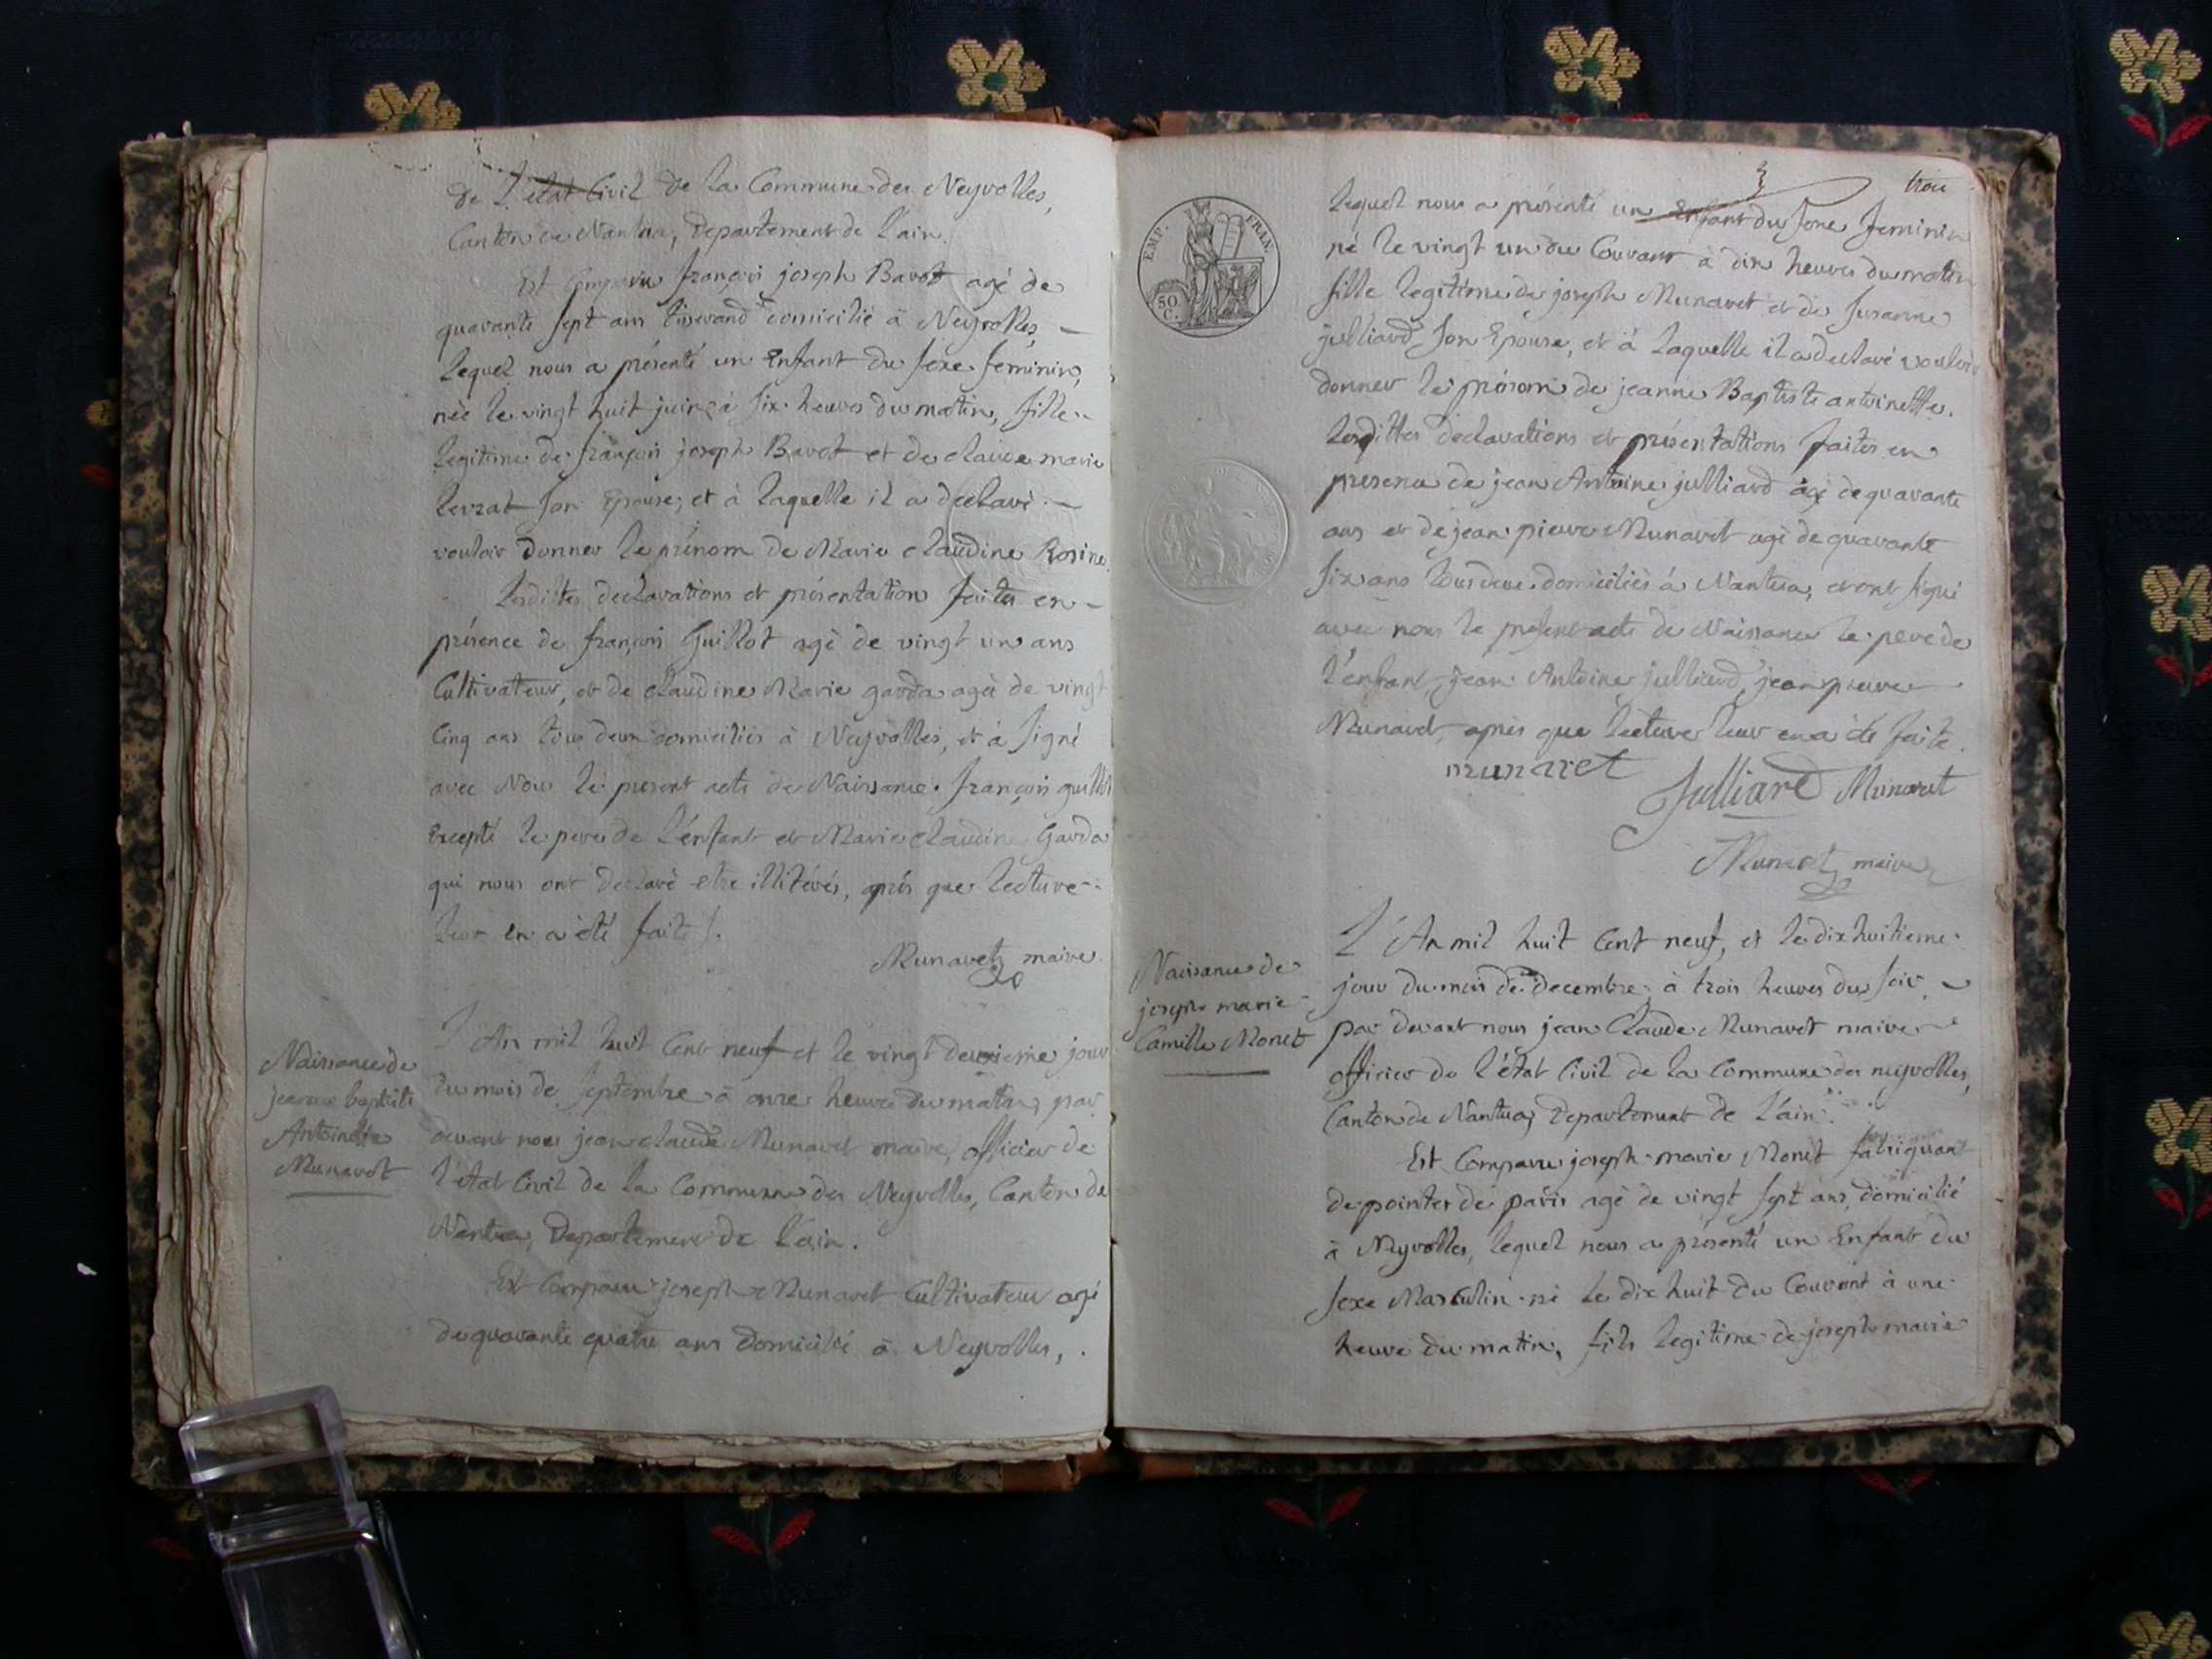 de L'état Civil de la Commune des Neyrolles,
Canton de Nantua, Departement de l'ain.
Est Comparu françois joseph Bavot agé de
quarante sept ans tisserand domicilié à Neyrolles,
Lequel nous a présenté un Enfant du sexe féminin,
née le vingt huit juin à six heures du matin, fille
Legitime de françois joseph Bavot et de claude marie
levrat son Epouse, et à laquelle il a declaré
vouloir donner le prénom de Marie claudine Rosine.
Lesdittes declarations et présentation faites en
présence de françois Guillot agé de vingt un ans
Cultivateur, et de claudine Marie garda agée de vingt
Cinq ans tous deux domiciliés à Neyrolles, et à signé
avec Nous le present acte de Naissance. françois guillot
Excepté le pere de l'énfant et Marie claudine Garda
qui nous ont declaré etre illitérés, aprés que lecture
leur en a été faite /.
Munaret maire
Naissance de
jeanne baptiste
Antoinette
Munaret
L'An mil huit Cent neuf et le vingt deuxieme jour
du mois de septembre à onze heures du matin, par
devant nous jean claude Munaret maire, officier de
l'état Civil de la Commune des Neyrolles, Canton de
Nantua, Departement de l'ain.
Est Comparu joseph Munaret Cultivateur agé
de quarante quatre ans domicilié à Neyrolles,
3
trois
EMP. FRAN.
50 C.
lequel nous a présenté un Enfant du sexe feminin
né le vingt un du Courant à dix heures du matin
fille legitime de joseph Munaret et de Susanne
julliard son Epouse, et à laquelle il a declaré vouloir
donner le prénom de jeanne Baptiste antoinette.
Lesdittes declarations et présentations faites en
presence de jean Antoine julliard agé de quarante
ans et de jean pierre Munaret agé de quarante
six ans tous deux domiciliés à Nantua, et ont signé
avec nous le present acte de Naissance le pere de
l'enfant, jean Antoine julliard, jean pierre
Munaret, aprés que lecture leur en a été faite.
munaret Julliard Munaret
Munaret maire
Naissance de
joseph marie
Camille Monet
L'An mil huit Cent neuf, et le dix huitieme
jour du mois de decembre à trois heures du soir,
par devant nous jean Claude Munaret maire
officier de l'état Civil de la Commune des neyrolles,
Canton de Nantua, Departement de l'ain.
Est Comparu joseph marie Monet fabriquant
de pointes de paris agé de vingt sept ans, domicilié
à Neyrolles, lequel nous a présenté un Enfant du
sexe Masculin né le dix huit du Courant à une
heure du matin, fils legitime de joseph marie